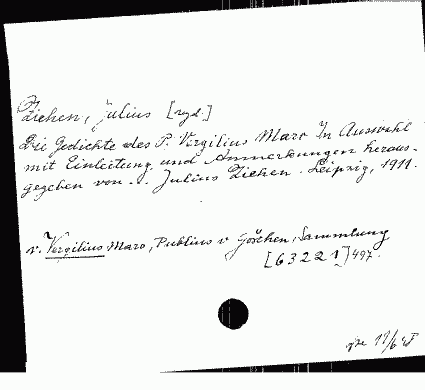 Ziehen, Julius [
Die Gedichte des P. Vergilius Maro In Auswahl
mit Einleitung und Anmerkungen heraus-
gegeben von ... Julius Ziehen. Leipzig, 1911.
v. Vergilius Maro, Publius v Göschen, Sammlung
[63221] 497.